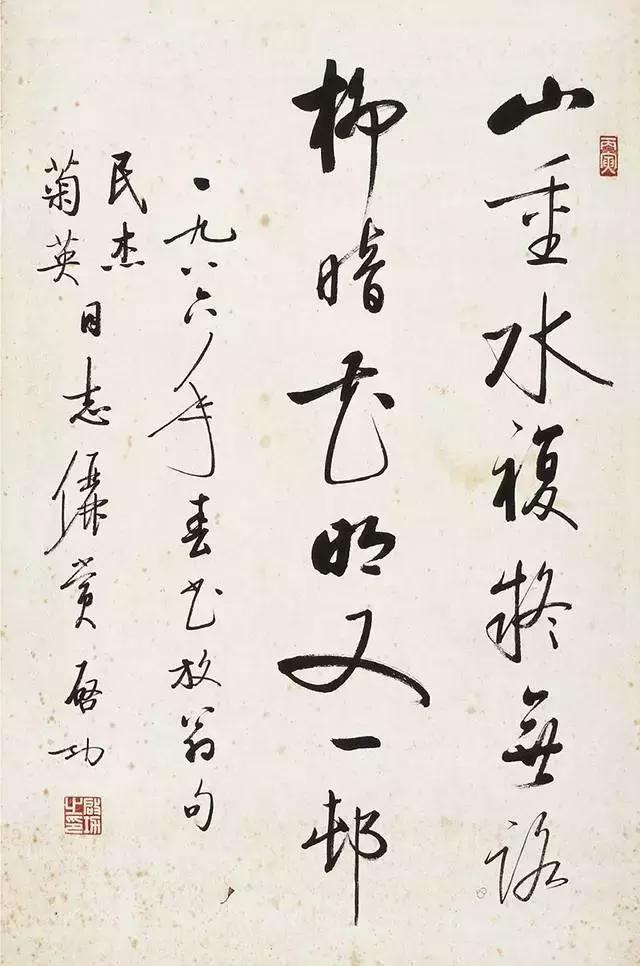 山重水複疑無路
柳暗花明又一邨
一九八六年春書放翁句
民杰
菊英同志儷賞 啓功
丙寅
啟功之印